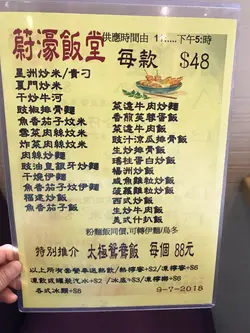 蔚濠飯堂
供應時間由 11......下午5:時
每款 $48
星洲炒米/貴刁
廈門炒米
干炒牛河
豉椒排骨麵
魚香茄子炆米
雪菜肉絲炆米
炸菜肉絲炆米
肉絲炒麵
豉油皇銀牙炒麵
干燒伊麵
福建炒飯
魚香茄子飯
菜遠牛肉炒麵
香煎芙蓉蛋飯
菜遠牛肉飯
豉汁涼瓜排骨飯
生炒排骨飯
瑤柱蛋白炒飯
揚州炒飯
咸魚雞粒炒飯
菠蘿雞粒炒飯
西炒飯
生炒牛肉飯
美式什扒飯
粉麵飯同價,可轉伊麵/烏冬
特別推介 太極鴛鴦飯 每個 88元
以上所有套餐奉送熱飲/熱檸蜜+$2/凍檸蜜+$6
凍飲或罐裝汽水+$2/冰底+$3/凍檸樂+$6
各式冰類+$8
9-7-2018